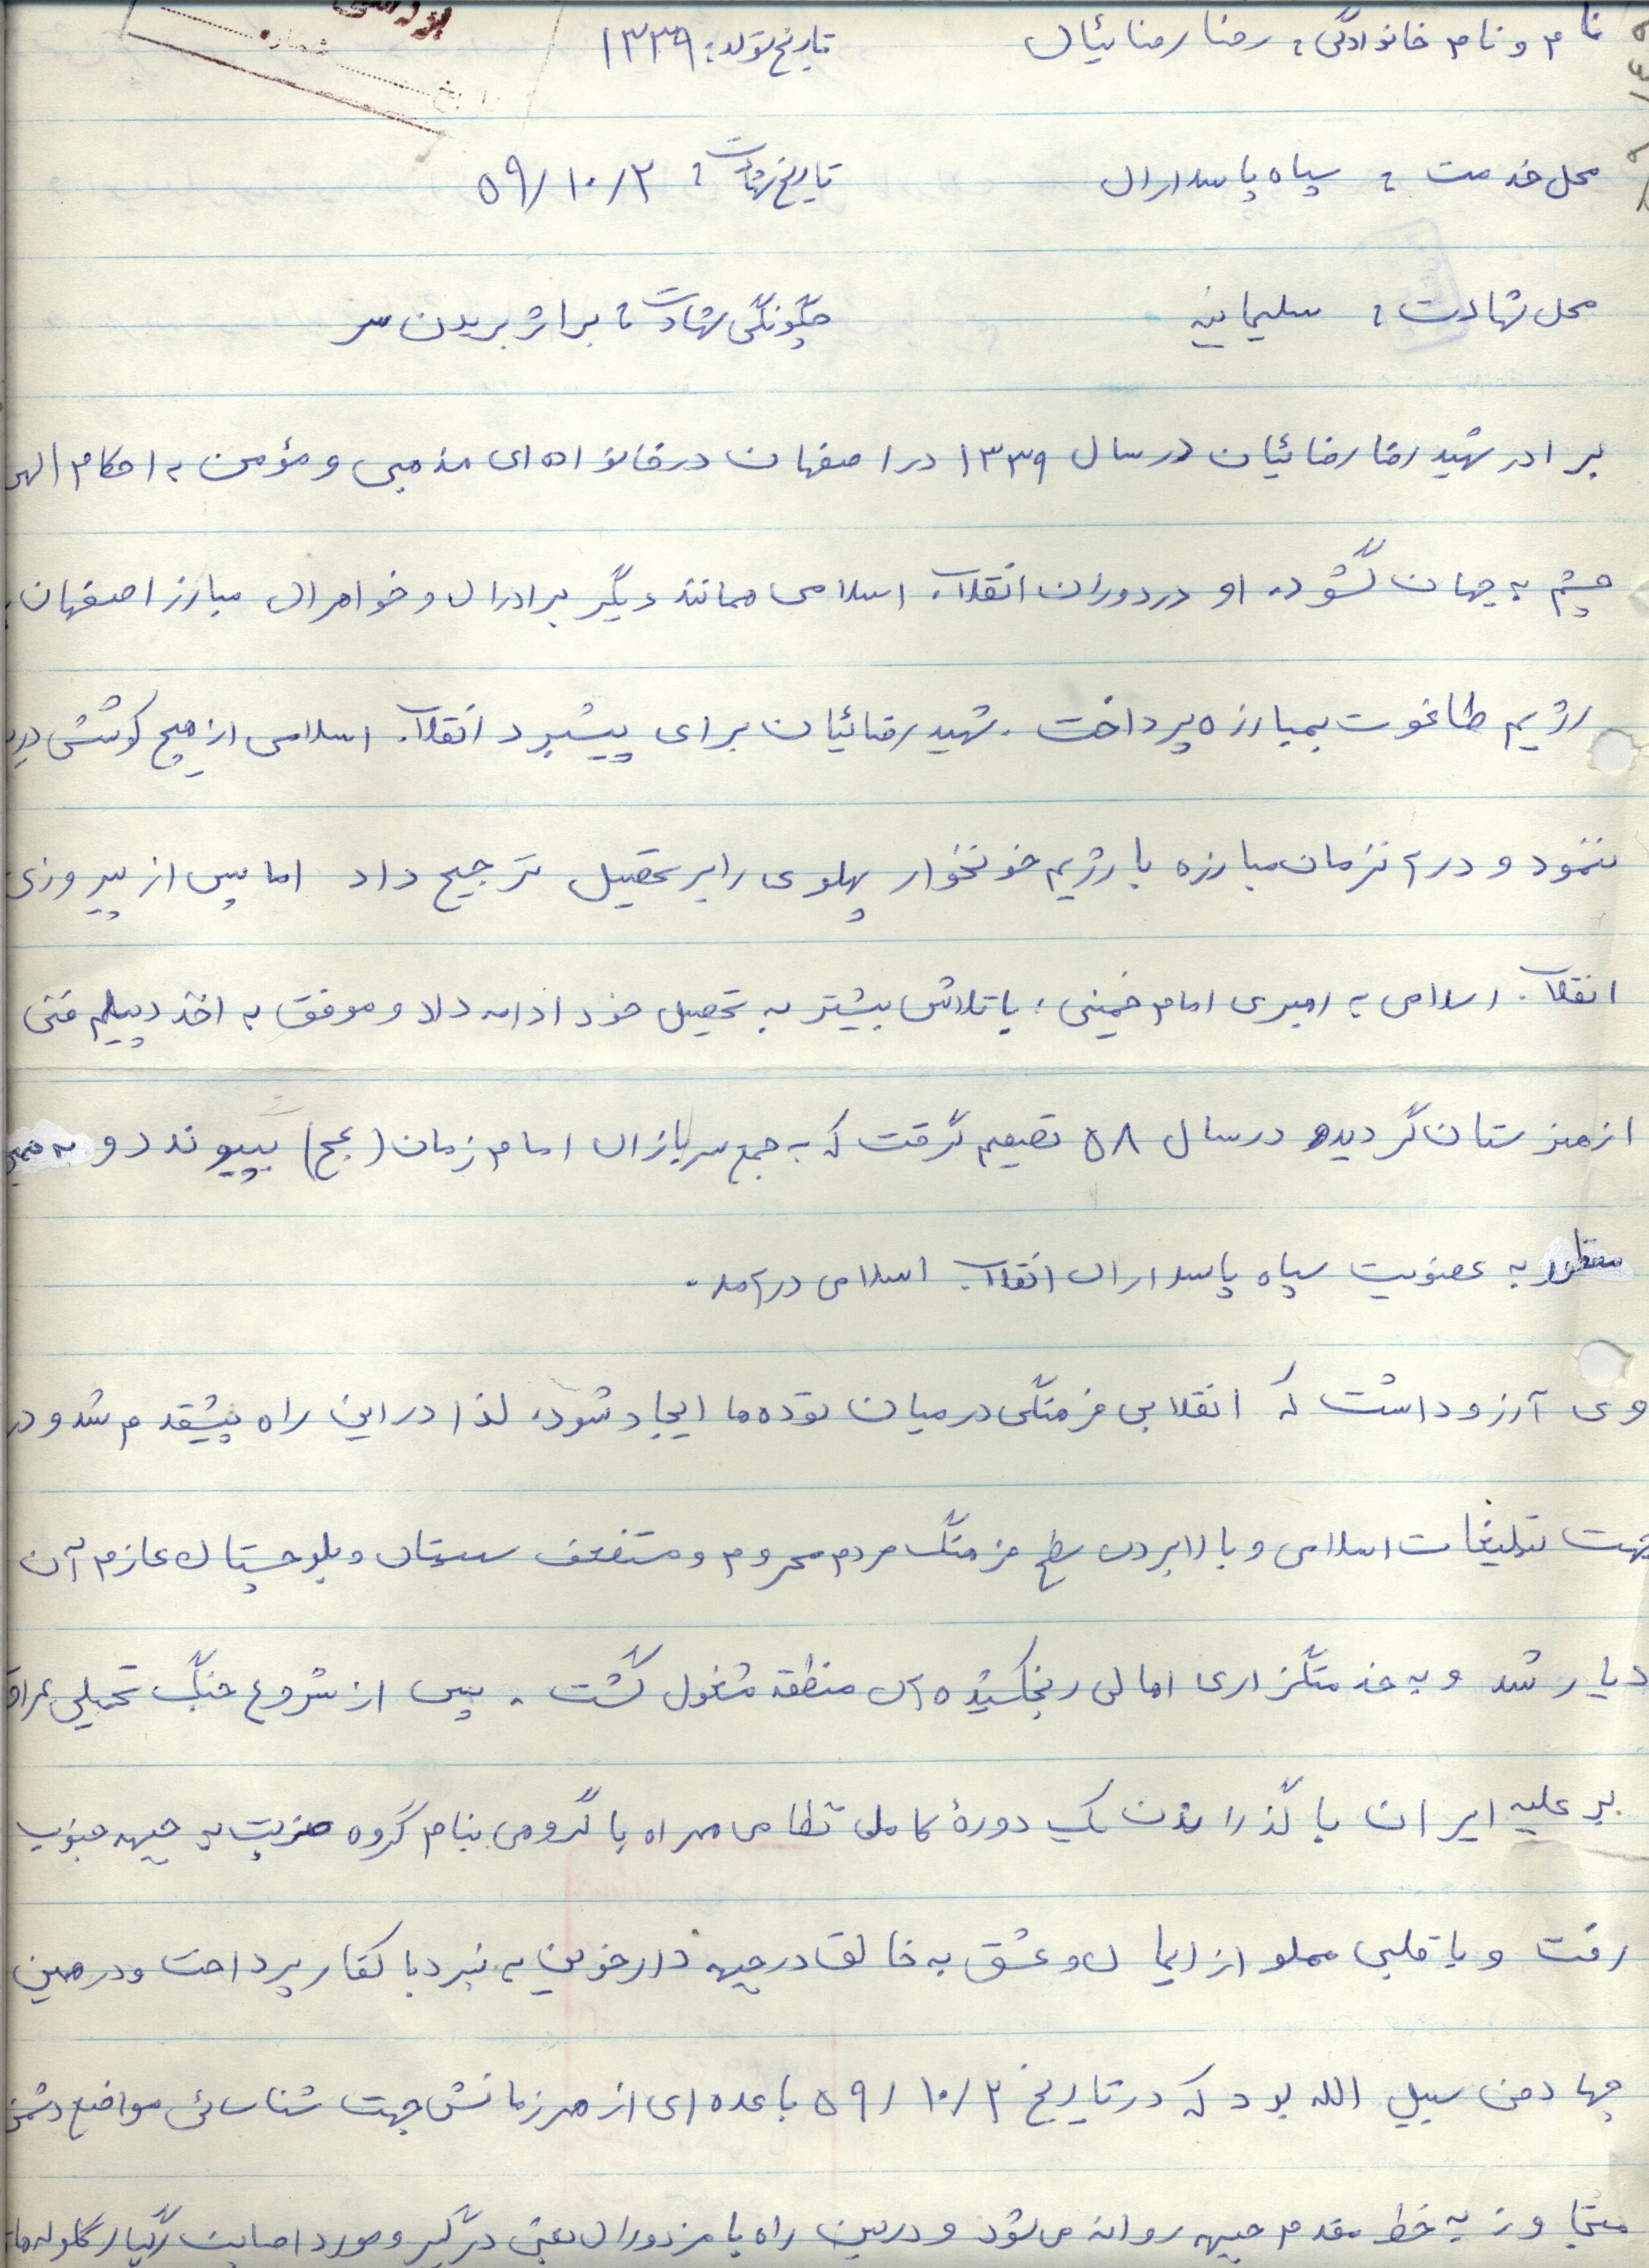 نام و نام خانوادگی: رضا رضائیان تاریخ تولد: ۱۳۳۹
محل خدمت: سپاه پاسداران تاریخ شهادت: ۵۹/۱۰/۲
محل شهادت: سلیمانیه چگونگی شهادت: بر اثر بریدن سر
برادر شهید رضا رضائیان در سال ۱۳۳۹ در اصفهان در خانواده‌ای مذهبی و مؤمن به احکام الهی
چشم به جهان گشود. او در دوران انقلاب اسلامی همانند دیگر برادران و خواهران مبارز اصفهان
رژیم طاغوت بمبارزه پرداخت. شهید رضائیان برای پیشبرد انقلاب اسلامی از هیچ کوششی
ننمود و در آنزمان مبارزه با رژیم خونخوار پهلوی را بر تحصیل ترجیح داد اما پس از پیروزی
انقلاب اسلامی به رهبری امام خمینی، با تلاش بیشتر به تحصیل خود ادامه داد و موفق به اخذ دیپلم فنی
از هنرستان گردید در سال ۵۸ تصمیم گرفت که به جمع سربازان امام زمان (عج) بپیوندد و به همین
منظور به عضویت سپاه پاسداران انقلاب اسلامی درآمد.
وی آرزو داشت که انقلابی فرهنگی در میان توده‌ها ایجاد شود، لذا در این راه پیشقدم شد و در
جهت تبلیغات اسلامی و بالا بردن سطح فرهنگ مردم محروم و مستضعف سیستان و بلوچستان عازم آن
دیار شد و به خدمتگزاری اهالی رنجکشیده آن منطقه مشغول گشت. پس از شروع جنگ تحمیلی عراق
بر علیه ایران با گذراندن یک دورهٔ کامل نظامی همراه با گروهی بنام گروه ضربت به جبهه جنوب
رفت و با قلبی مملو از ایمان و عشق به خالق در جبهه دارخوین به نبرد با کفار پرداخت و در همین
جهاد فی سبیل الله بود که در تاریخ ۵۹/۱۰/۲ با عده‌ای از همرزمانش جهت شناسائی مواضع دشمن
متجاوز به خط مقدم جبهه روانه می‌شود و در بین راه با مزدوران بعثی درگیر و مورد اصابت رگبار گلوله‌ها